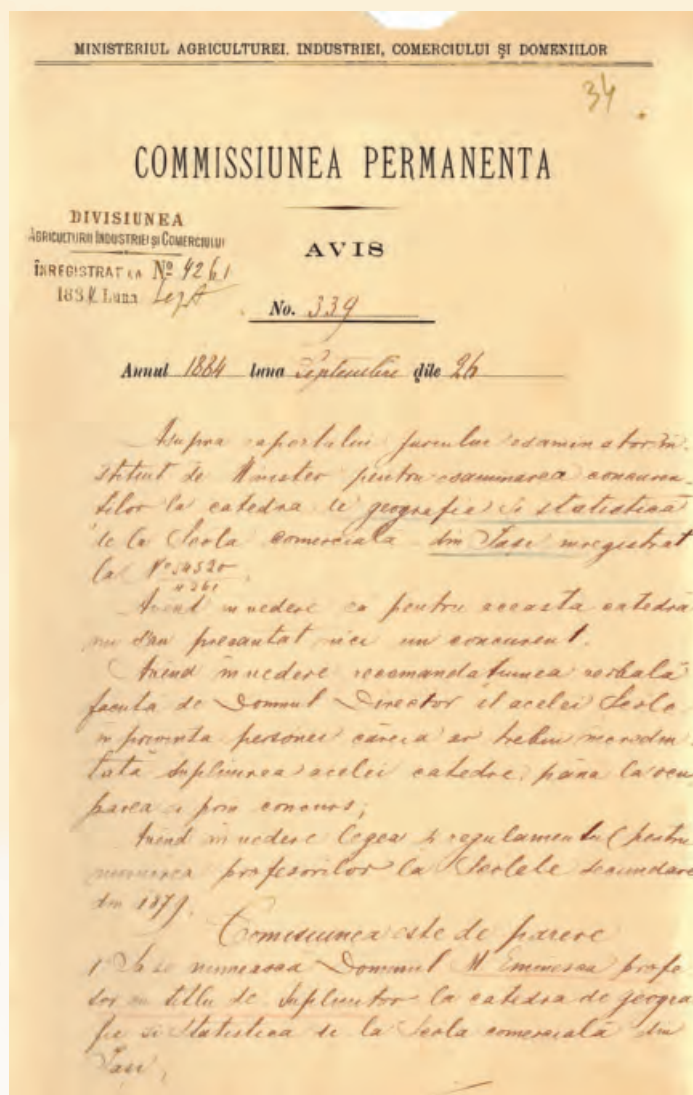 MINISTERIUL AGRICULTUREI, INDUSTRIEI, COMERCIULUI ȘI DOMENIILOR
34
COMMISSIUNEA PERMANENTA
DIVISIUNEA
AGRICULTURII INDUSTRIEI ȘI COMERCIULUI
ÎNREGISTRAT LA No 4261
1884 Luna Sept
AVIS
No. 339
Annul 1884 luna Septembre dile 26
Asupra raportului juriului esaminator in-
stituit de Minister pentru esaminarea concuren-
ților la catedra de geografie si statistica
de la Scola comerciala din Iași inregistrat
la No 34520
4261
Avend in vedere ca pentru aceasta catedra
nu s'au presantat nici un concurent.
Avend in vedere recomandatiunea verbală
facuta de Domnul Director al acelei Scole
in privinta persoanei căreia ar trebui incredin-
tată suplinirea acelei catedre, pâna la ocu-
parea ei prin concurs;
Avend in vedere legea si regulamentul pentru
numirea profesorilor la Scolele secundare
din 1879.
Comisiunea este de parere
1 Sa se numeasca Domnul M Eminescu profe-
sor cu titlu de suplinitor la catedra de geogra
fie si Statistica de la Scola comercială din
Iași,